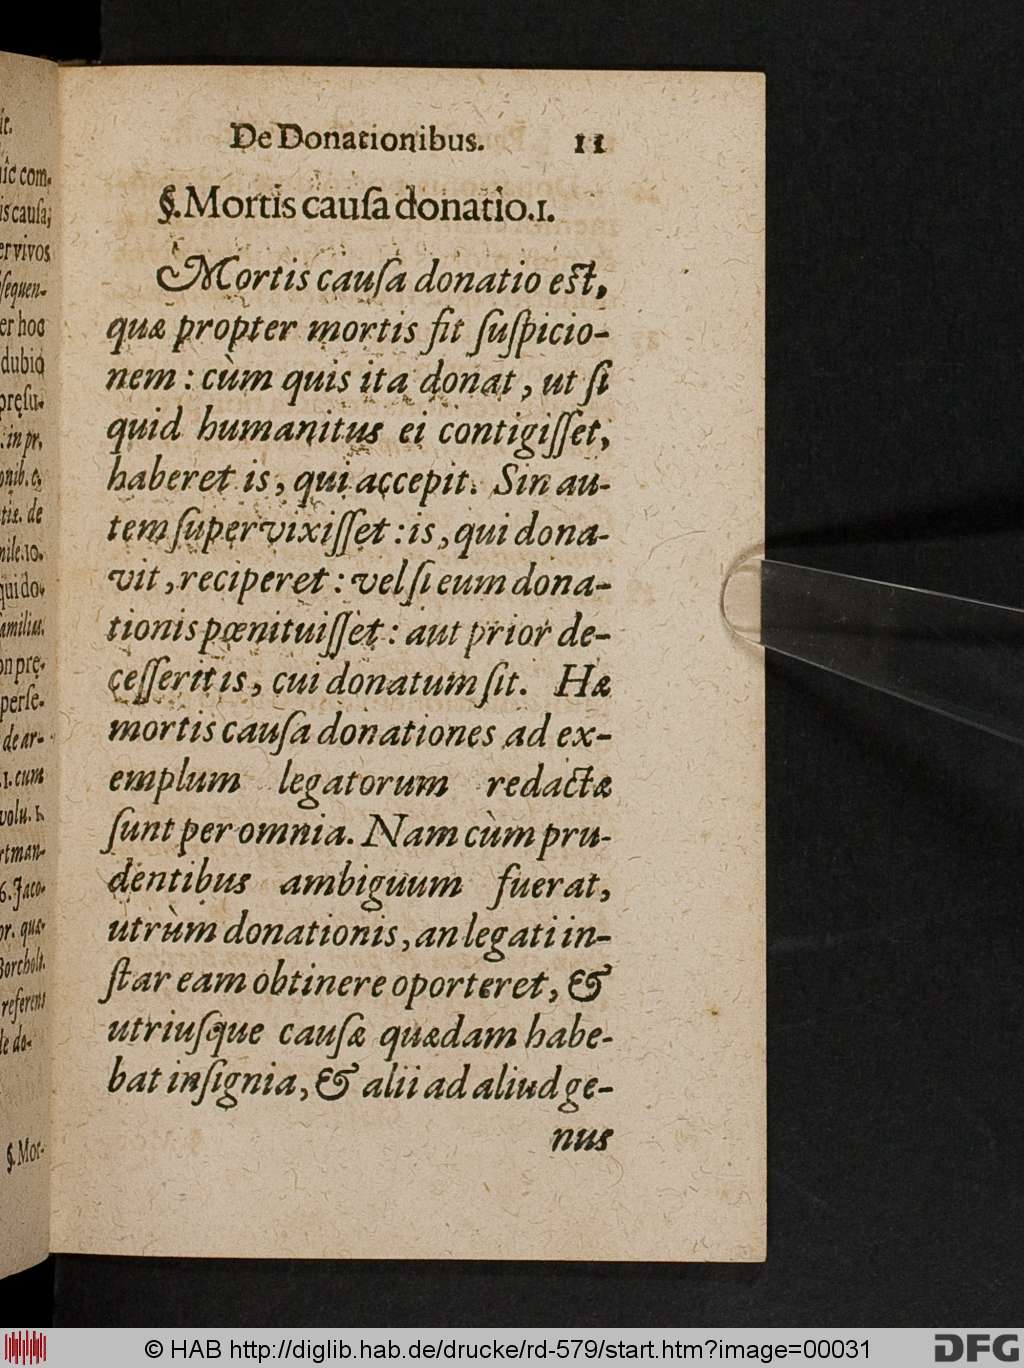 ic.
hîc com-
is causa,
er vivos
sequen-
er hoc
dubio
pręsu-
: in pr.
onib. c.
tiæ. de
mile. 10.
qui do-
familiæ.
on prę-
perse-
de ar-
.1. cum
volu. 1.
rtman-
6. Jaco-
or. quæ-
Borcholt.
referent
de do-
§. Mor-
De Donationibus. 11
§. Mortis causa donatio. 1.
Mortis causa donatio est,
quæ propter mortis fit suspicio-
nem : cùm quis ita donat, ut si
quid humanitus ei contigisset,
haberet is, qui accepit. Sin au-
tem supervixisset : is, qui dona-
vit, reciperet : vel si eum dona-
tionis pœnituisset : aut prior de-
cesserit is, cui donatum sit. Hæ
mortis causa donationes ad ex-
emplum legatorum redactæ
sunt per omnia. Nam cùm pru-
dentibus ambiguum fuerat,
utrùm donationis, an legati in-
star eam obtinere oporteret, &
utriusque causæ quædam habe-
bat insignia, & alii ad aliud ge-
nus
© HAB http://diglib.hab.de/drucke/rd-579/start.htm?image=00031
DFG